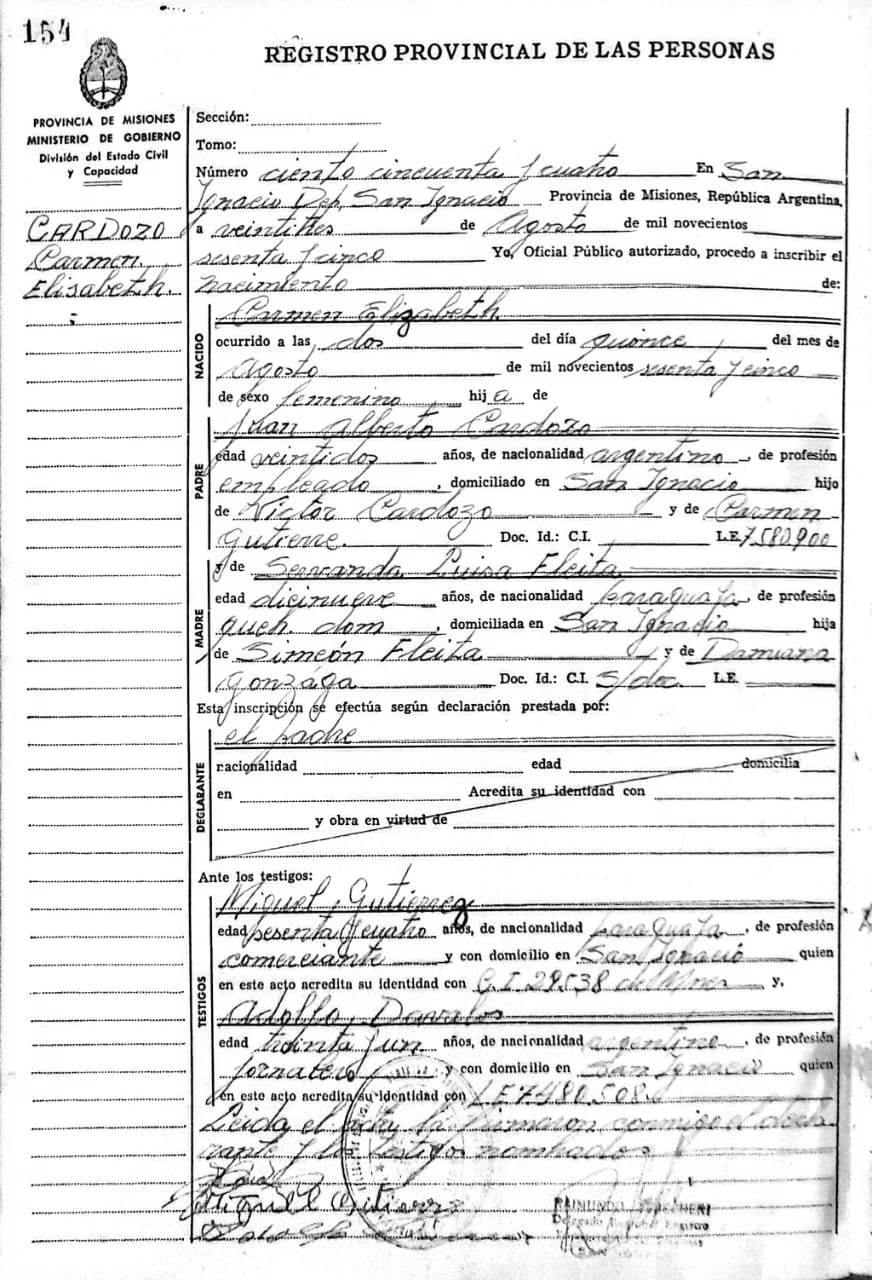 154
REGISTRO PROVINCIAL DE LAS PERSONAS
PROVINCIA DE MISIONES
MINISTERIO DE GOBIERNO
División del Estado Civil
y Capacidad
CARDOZO
Carmen
Elisabeth.
Sección:
Tomo:
Número ciento cincuenta y cuatro En San
Ignacio Dep. San Ignacio Provincia de Misiones, República Argentina,
a veintitres de Agosto de mil novecientos
sesenta y cinco Yo, Oficial Público autorizado, procedo a inscribir el
nacimiento de:
NACIDO
Carmen Elizabeth
ocurrido a las dos del día quince del mes de
Agosto de mil novecientos sesenta y cinco
de sexo femenino hija de
PADRE
Juan Alberto Cardozo
edad veintidos años, de nacionalidad argentino, de profesión
empleado, domiciliado en San Ignacio hijo
de Victor Cardozo y de Carmen
Gutierre. Doc. Id.: C.I. L.E. 7580900
MADRE
y de Servanda Luisa Fleita
edad dicinueve años, de nacionalidad paraguaya, de profesión
queh. dom, domiciliada en San Ignacio hija
de Simeón Fleita y de Damiana
Gonzaga Doc. Id.: C.I. s/doc. L.E.
Esta inscripción se efectúa según declaración prestada por:
el padre
DECLARANTE
nacionalidad edad domicilia
en Acredita su identidad con
y obra en virtud de
Ante los testigos:
TESTIGOS
Miguel Gutierrez
edad sesenta y cuatro años, de nacionalidad paraguaya, de profesión
comerciante y con domicilio en San Ignacio quien
en este acto acredita su identidad con C.I 29.538 de y.
Adolfo Davalos
edad treinta y un años, de nacionalidad argentino, de profesión
jornalero y con domicilio en San Ignacio quien
en este acto acredita su identidad con L.E 7480.508.
Leida el acta la firmaron conmigo el decla-
rante y los testigos nombrados
Miguel Gutierre
RAIMUNDO
Delegado Registro